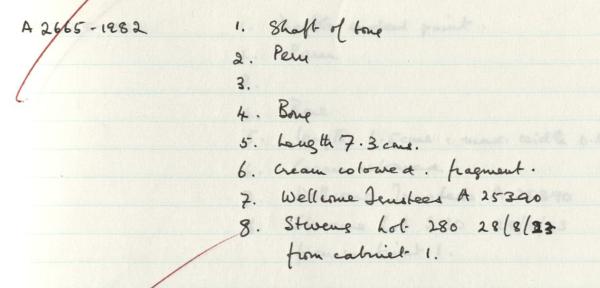 A 2665-1982 1. Shaft of bone
2. Peru
3.
4. Bone
5. Length 7.3 cms.
6. Cream coloured. fragment.
7. Wellcome Trustees A 25390
8. Stevens Lot 280 28/8/23
from cabinet 1.